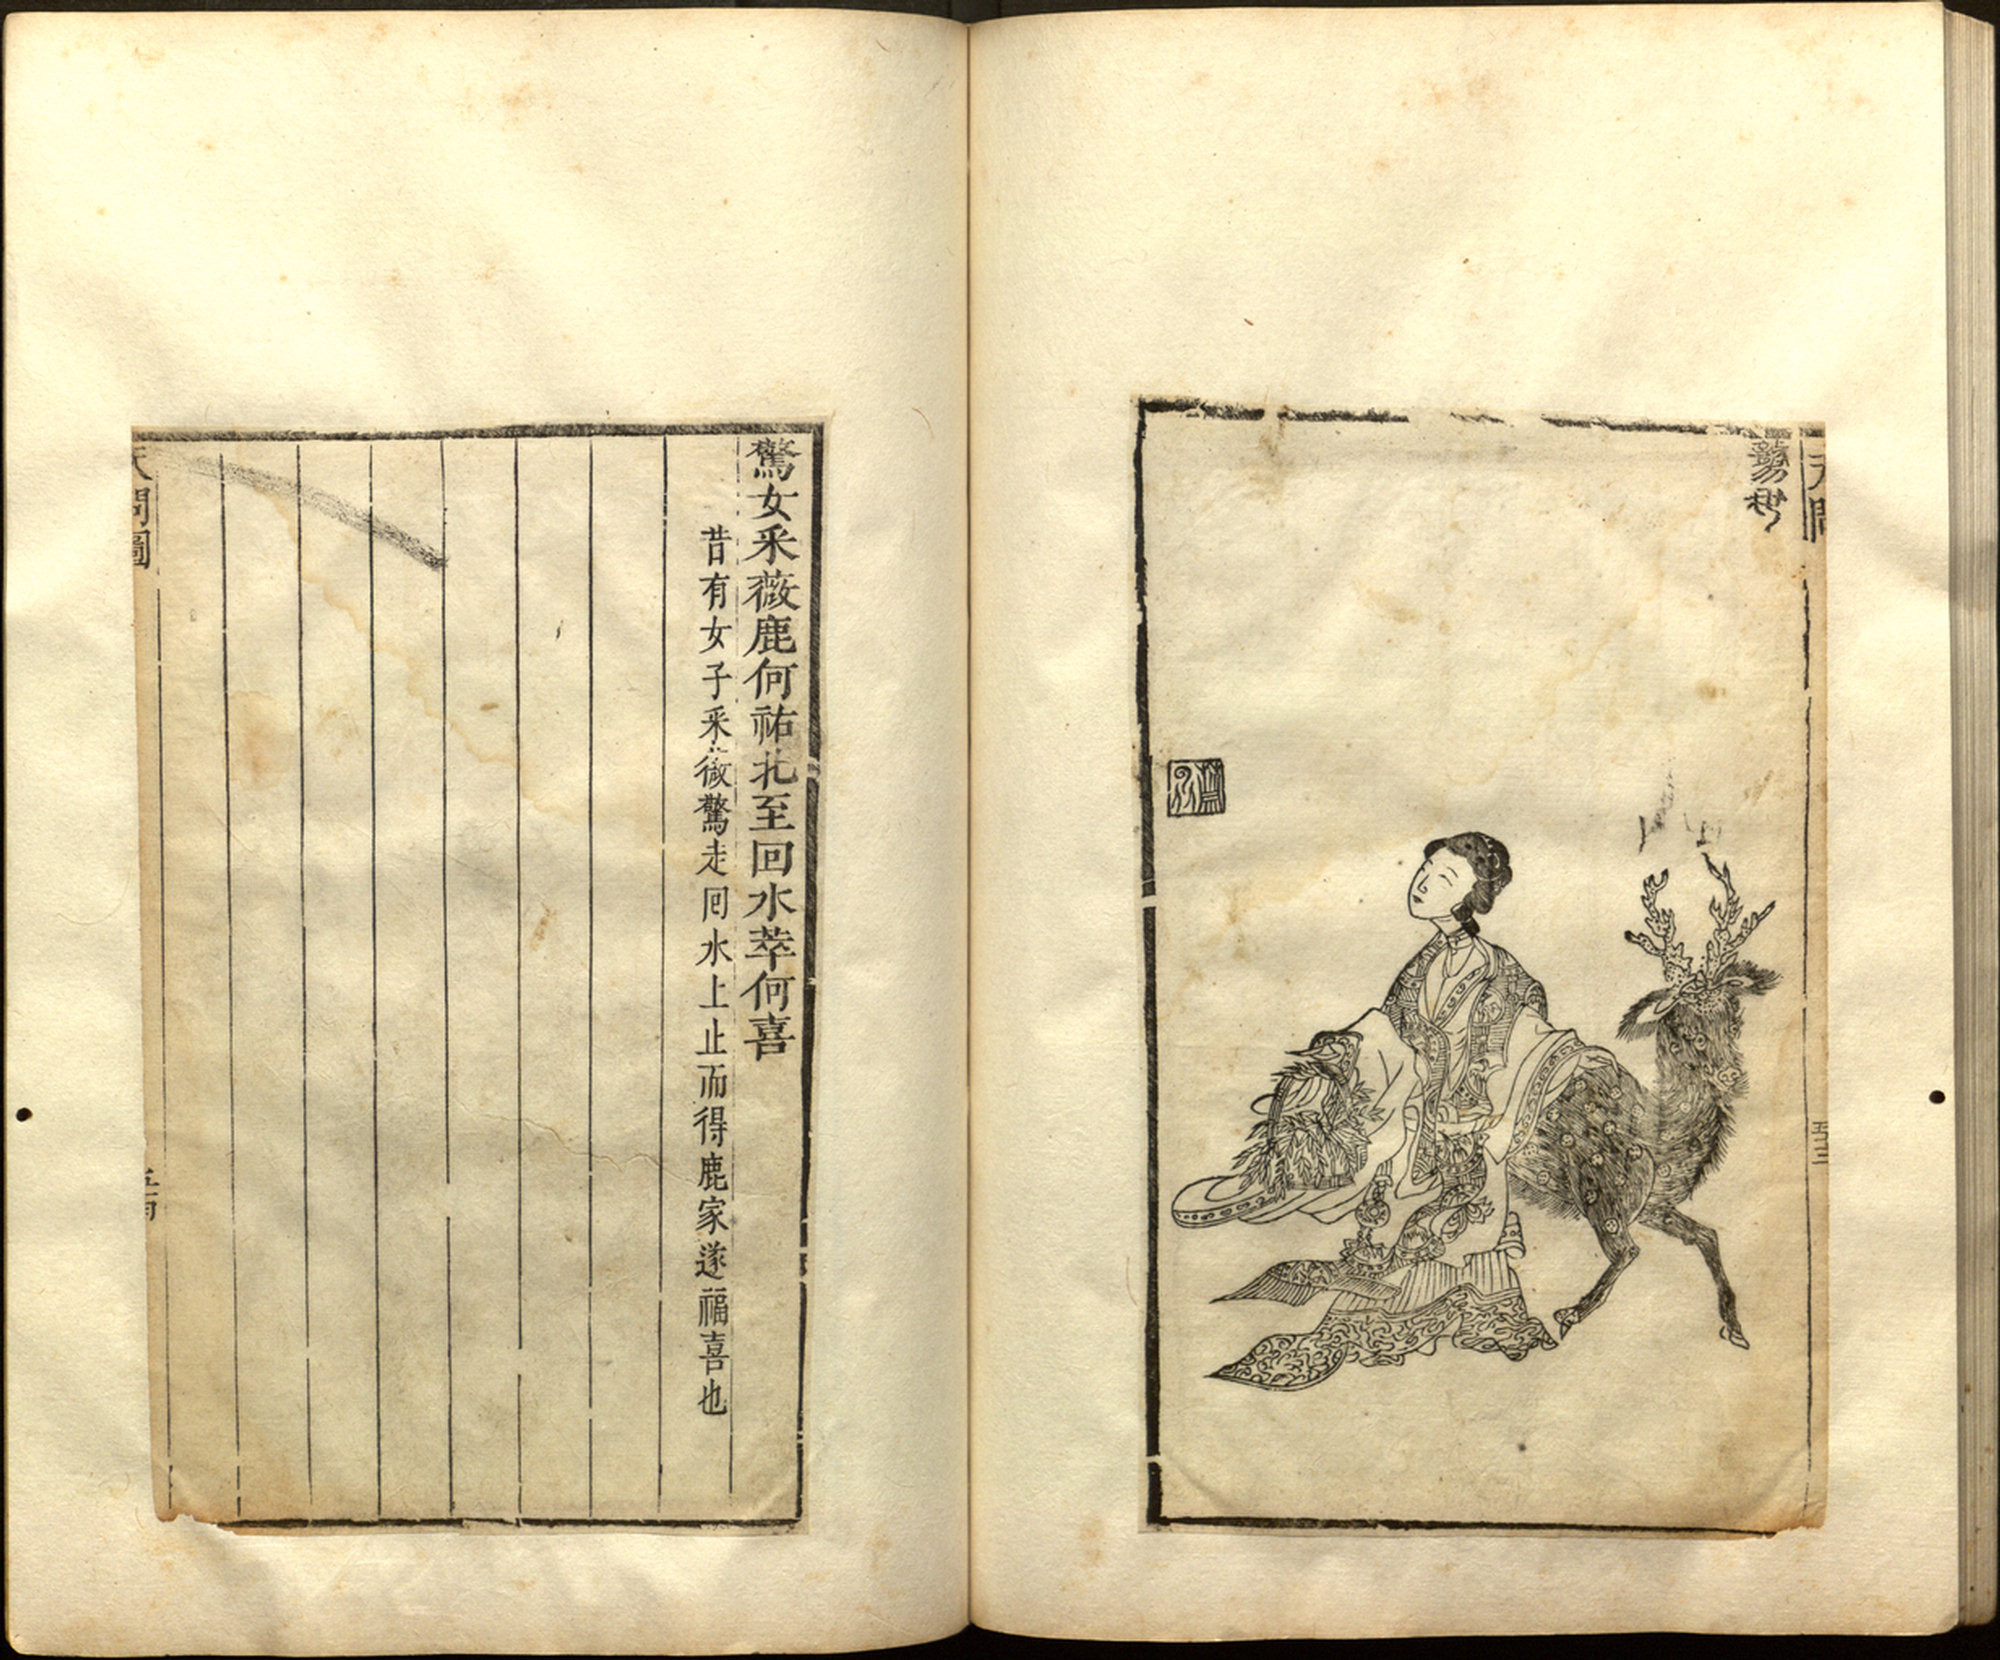 天問
驚女采薇鹿何祐北至回水萃何喜
昔有女子采薇驚走囘水上止而得鹿家遂福喜也
天問圖